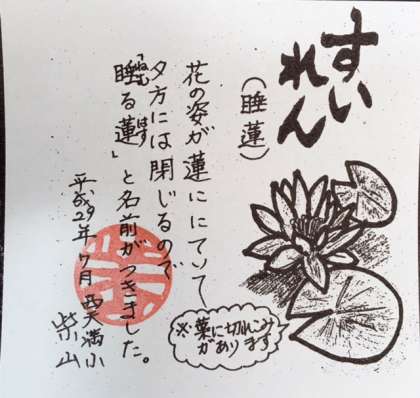 すいれん
(睡蓮)
花の姿が蓮ににていて
夕方には閉じるので
「睡る蓮」と名前がつきました。
ねむ
はす
平成29年7月 西天満小
柴山
※葉に切れこみ
があります